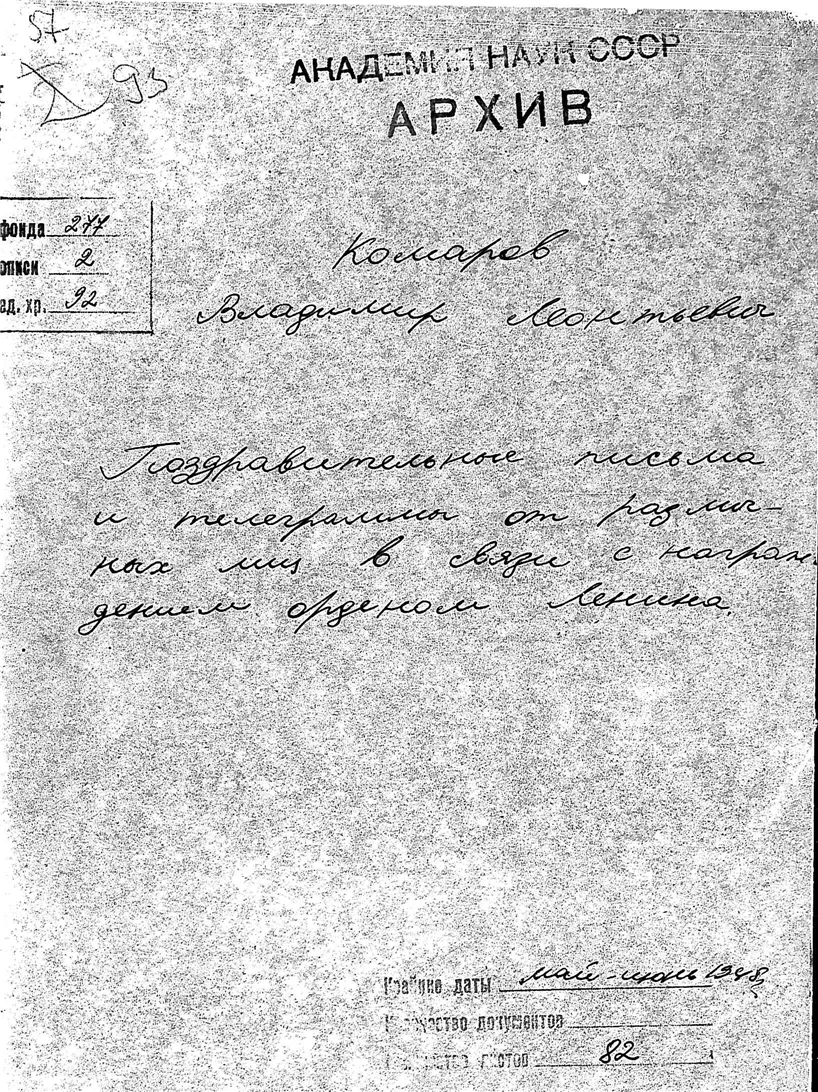 57
93
АКАДЕМИЯ НАУК СССР
АРХИВ
фонда 277
описи 2
ед. хр. 92
Комаров
Владимир Леонтьевич
Поздравительные письма
и телеграммы от различ-
ных лиц в связи с награж-
дением орденом Ленина.
Крайние даты май-июнь
Количество документов
Количество листов 82